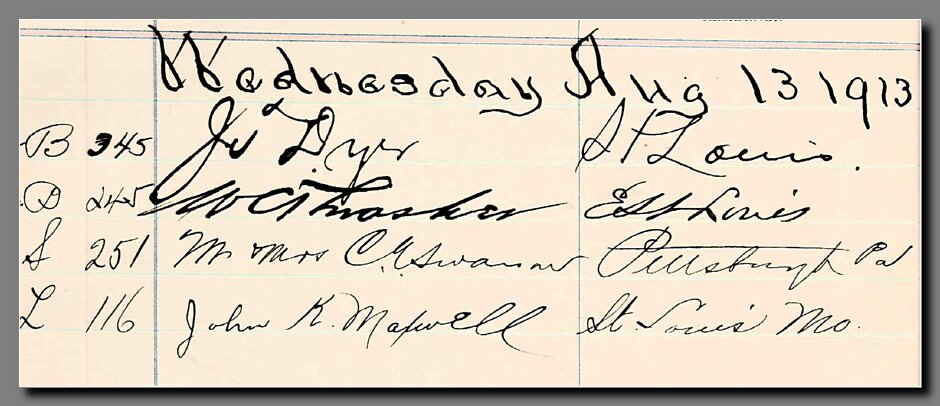 Wednesday Aug 13 1913
B 345 Jos Dyer St. Louis.
D 245 W C Thrasher E St Louis
S 251 Mr & Mrs C. A. Swanson Pittsburgh Pa
L 116 John K. Maxwell St. Louis Mo.